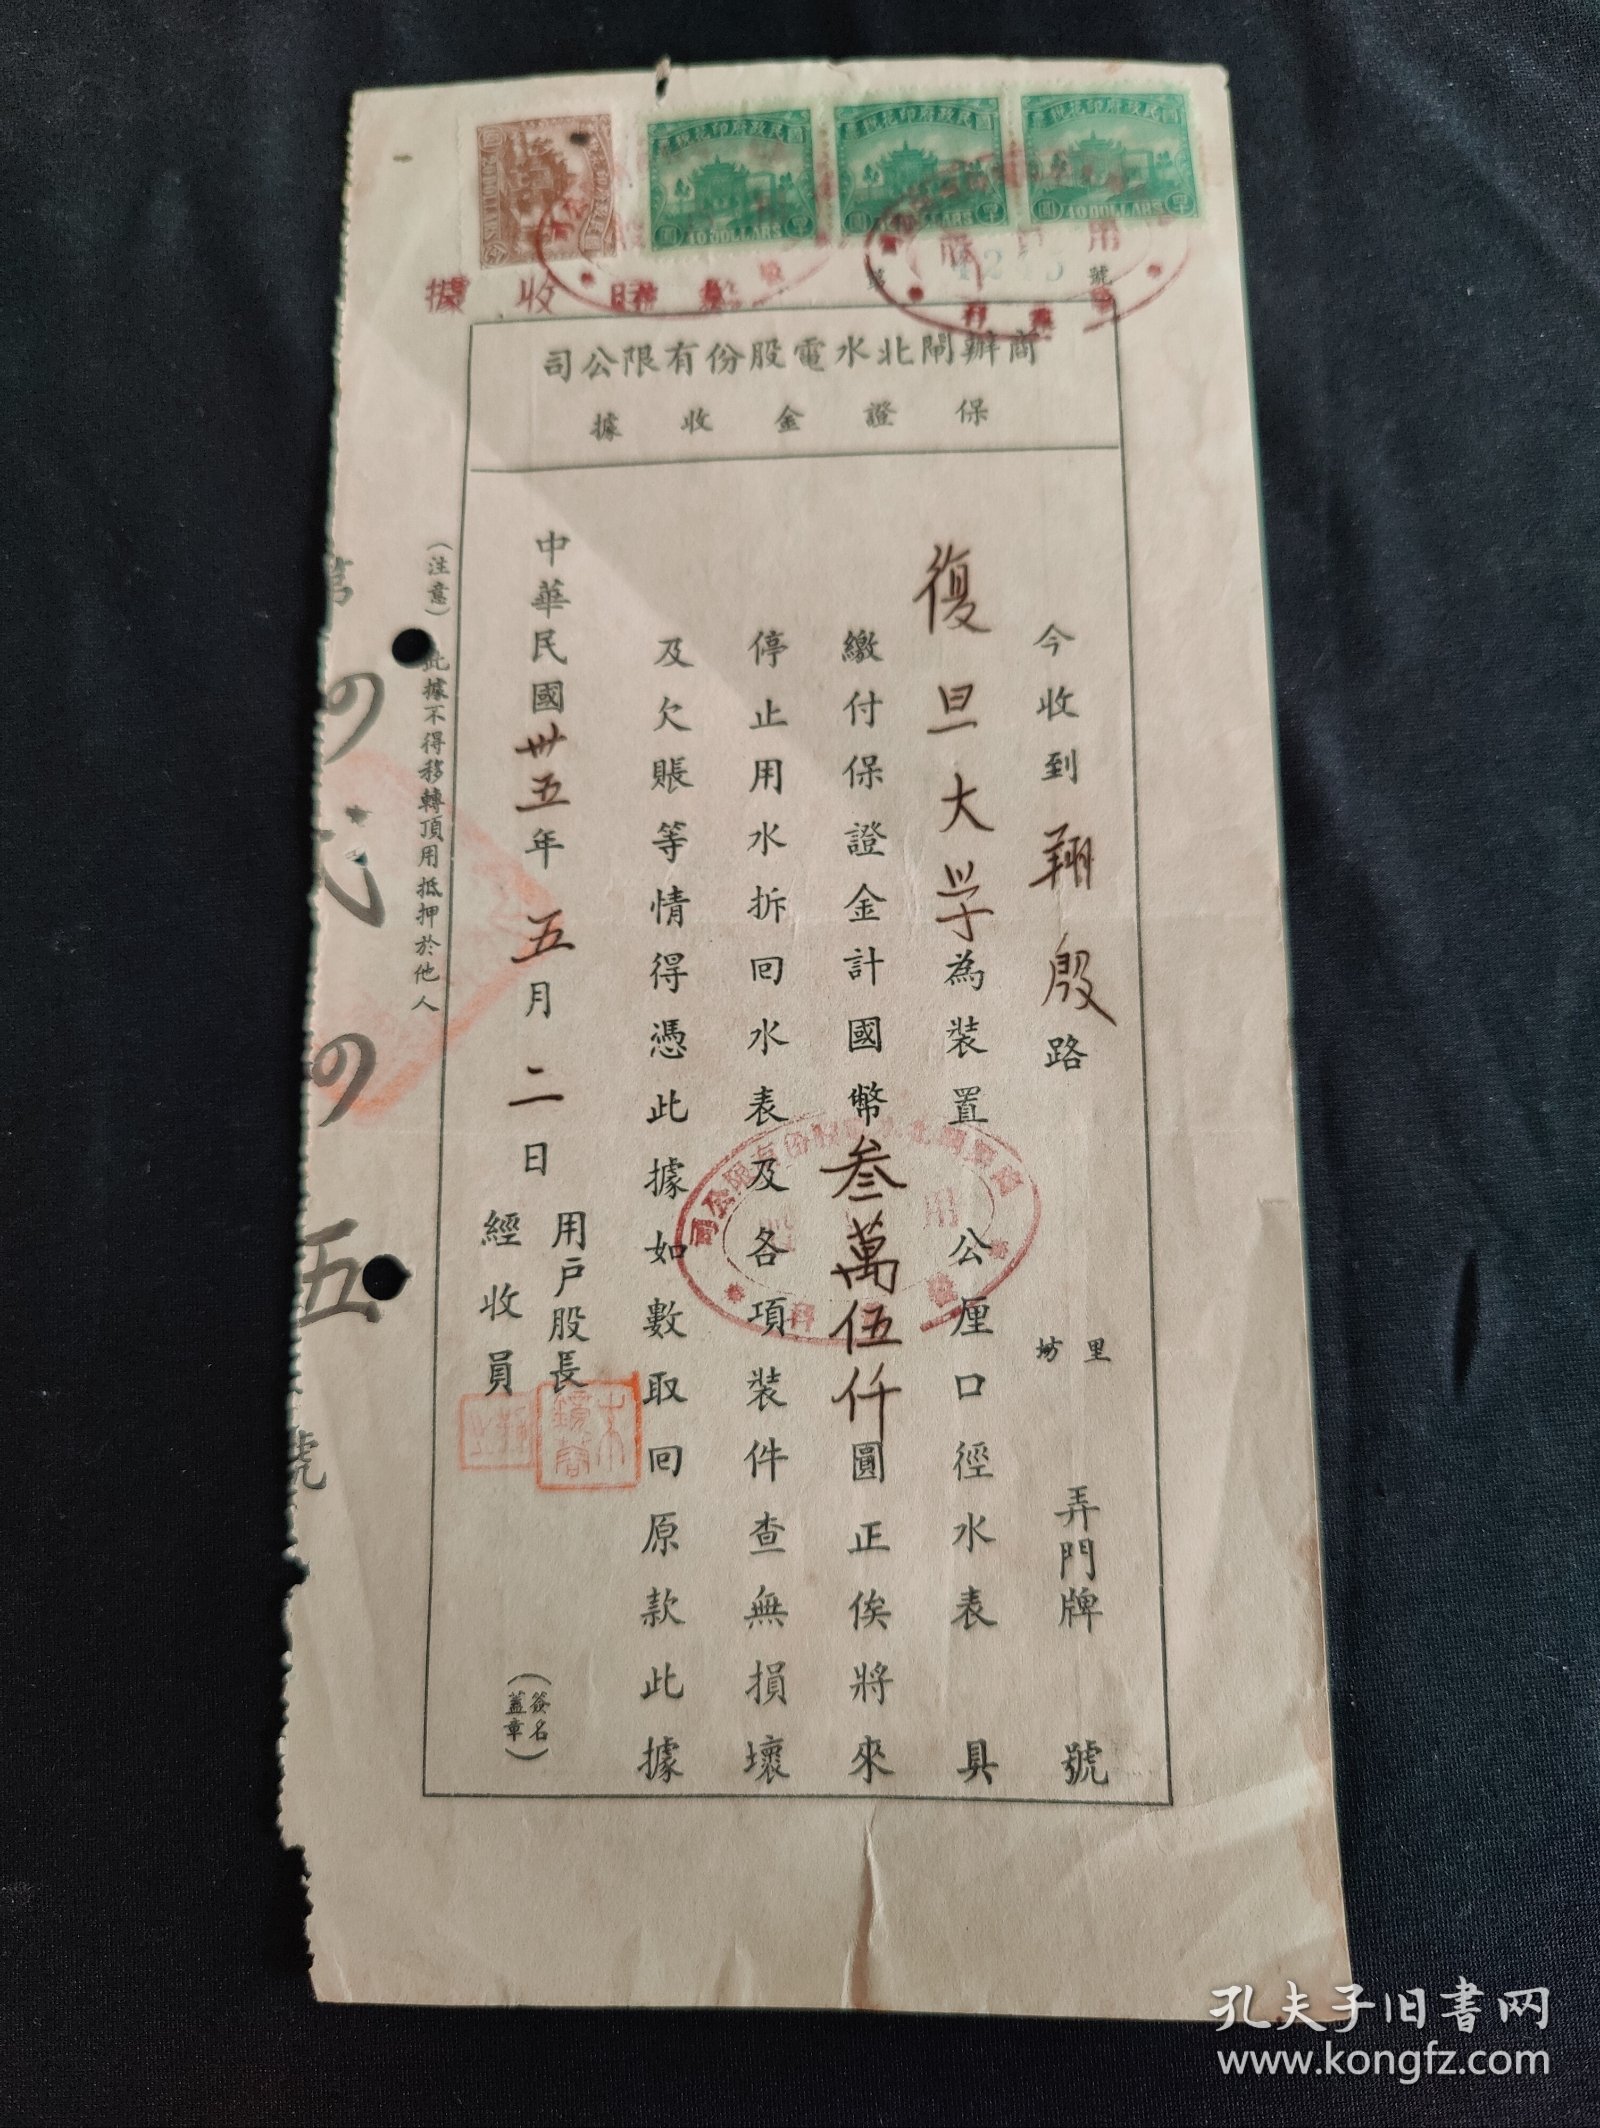 國民政府印花稅票
40 DOLLARS
國民政府印花稅票
40 DOLLARS
國民政府印花稅票
40 DOLLARS
號
收據
商辦閘北水電股份有限公司
保證金收據
今收到翔殷路 里坊 弄門牌 號
復旦大学為裝置 公厘口徑水表 具
繳付保證金計國幣叁萬伍仟圓正俟將來
停止用水拆回水表及各項裝件查無損壞
及欠賬等情得憑此據如數取回原款此據
中華民國卅五年五月二日
用户股長
經收員
(簽名蓋章)
(注意)此據不得移轉頂用抵押於他人
五
號
孔夫子旧书网
www.kongfz.com